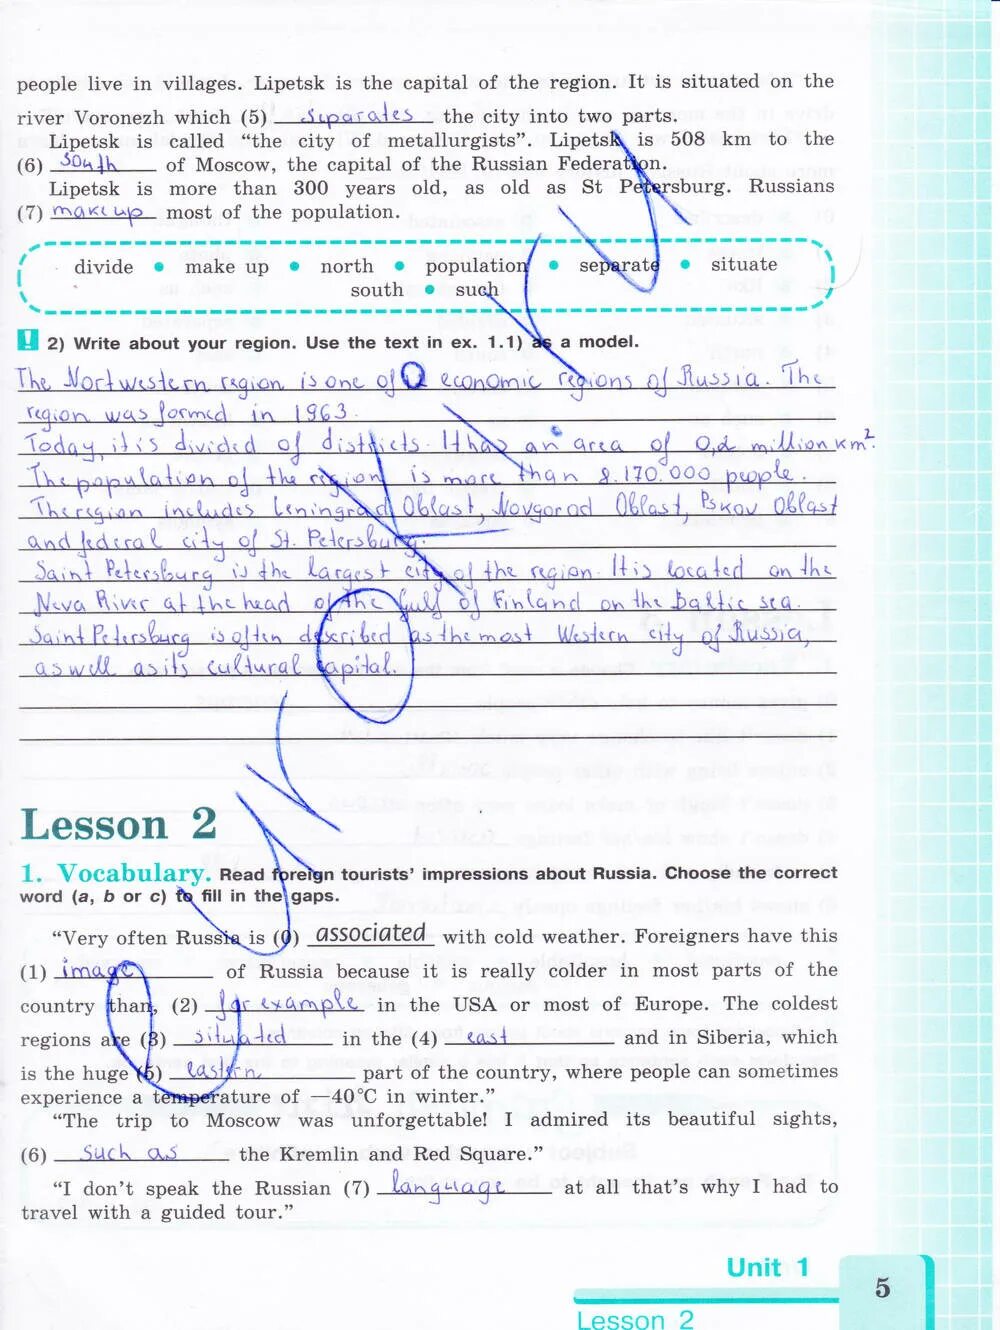 people live in villages. Lipetsk is the capital of the region. It is situated on the
river Voronezh which (5) separates the city into two parts.
Lipetsk is called “the city of metallurgists”. Lipetsk is 508 km to the
(6) south of Moscow, the capital of the Russian Federation.
Lipetsk is more than 300 years old, as old as St Petersburg. Russians
(7) make up most of the population.
divide • make up • north • population • separate • situate
south • such
! 2) Write about your region. Use the text in ex. 1.1) as a model.
The Nortwestern region is one of 12 economic regions of Russia. The
region was formed in 1963.
Today, it is divided of districts. It has an area of 0,2 million km².
The population of the region is more than 8.170.000 people.
The region includes Leningrad Oblast, Novgorod Oblast, Pskov Oblast
and federal city of St. Petersburg.
Saint Petersburg is the largest city of the region. It is located on the
Neva River at the head of the Gulf of Finland on the Baltic sea.
Saint Petersburg is often described as the most Western city of Russia,
as well as its cultural capital.
Lesson 2
1. Vocabulary. Read foreign tourists’ impressions about Russia. Choose the correct
word (a, b or c) to fill in the gaps.
“Very often Russia is (0) associated with cold weather. Foreigners have this
(1) image of Russia because it is really colder in most parts of the
country than, (2) for example in the USA or most of Europe. The coldest
regions are (3) situated in the (4) east and in Siberia, which
is the huge (5) eastern part of the country, where people can sometimes
experience a temperature of —40°C in winter.”
“The trip to Moscow was unforgettable! I admired its beautiful sights,
(6) such as the Kremlin and Red Square.”
“I don’t speak the Russian (7) language at all that’s why I had to
travel with a guided tour.”
Unit 1
5
Lesson 2